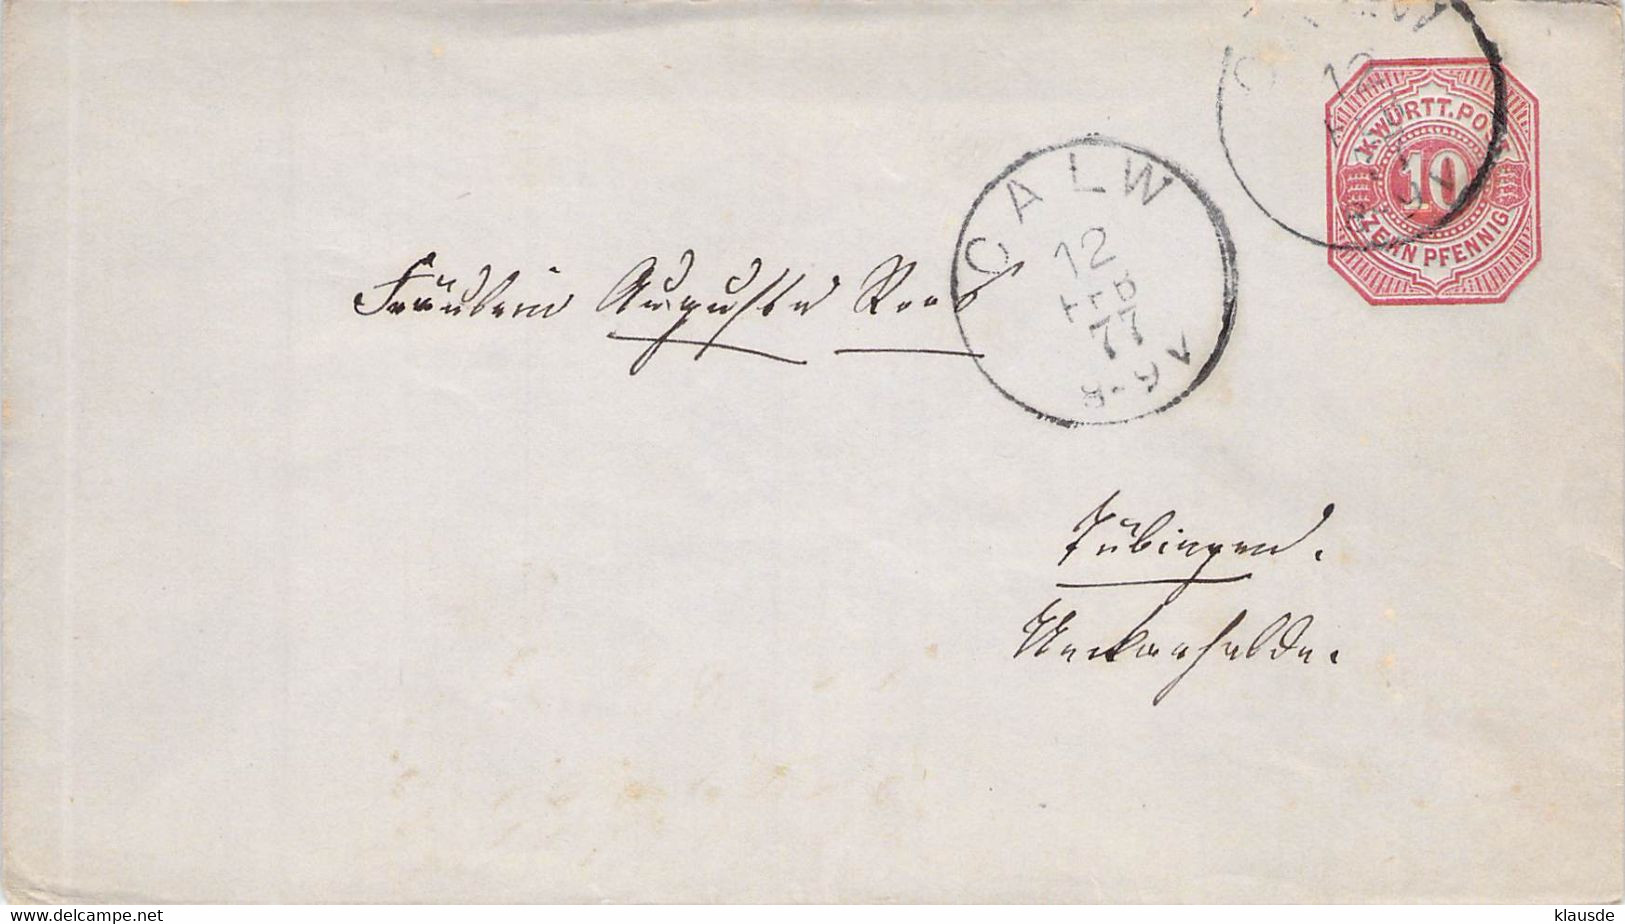 K. WÜRTT. POST
10
ZEHN PFENNIG
CALW
12
FEB
77
8-9 V
CALW
12
FEB
77
8-9 V
Fräulein Auguste Roos
Tübingen.
Neckarhalde.
www.delcampe.net
klausde